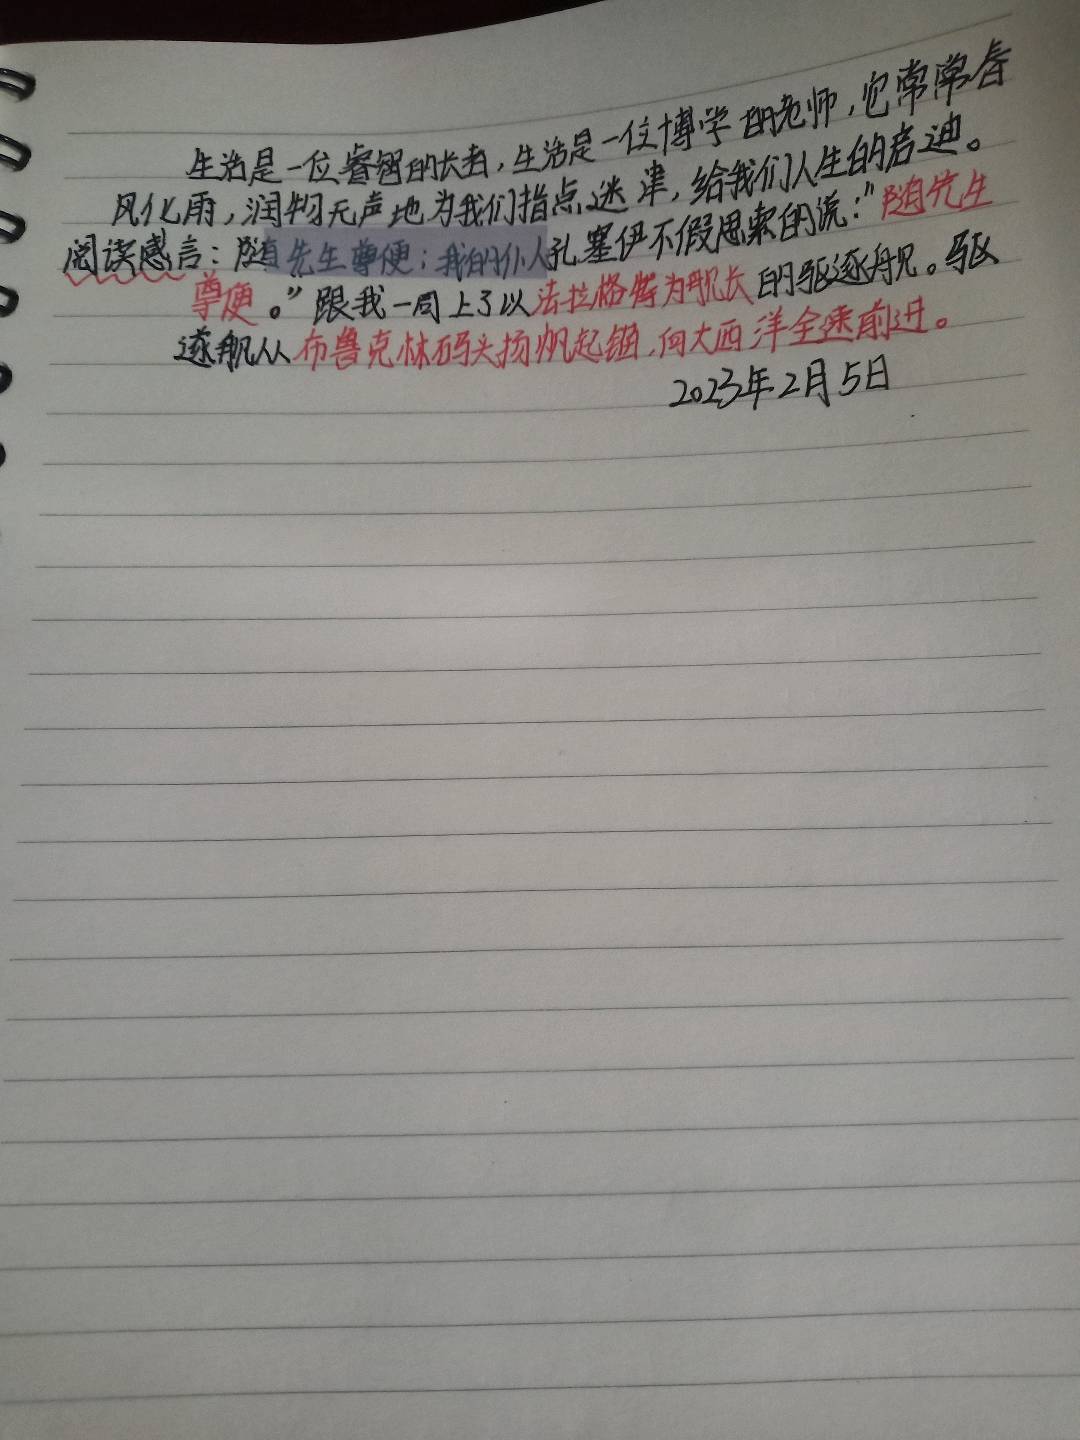 生活是一位睿智的长者，生活是一位博学的老师，它常常春
风化雨，润物无声地为我们指点迷津，给我们人生的启迪。
阅读感言：随先生尊便；我的仆人孔塞伊不假思索的说：“随先生
尊便。”跟我一同上了以法拉格特为舰长的驱逐舰。驱
逐舰从布鲁克林码头扬帆起锚，向大西洋全速前进。
2023年2月5日